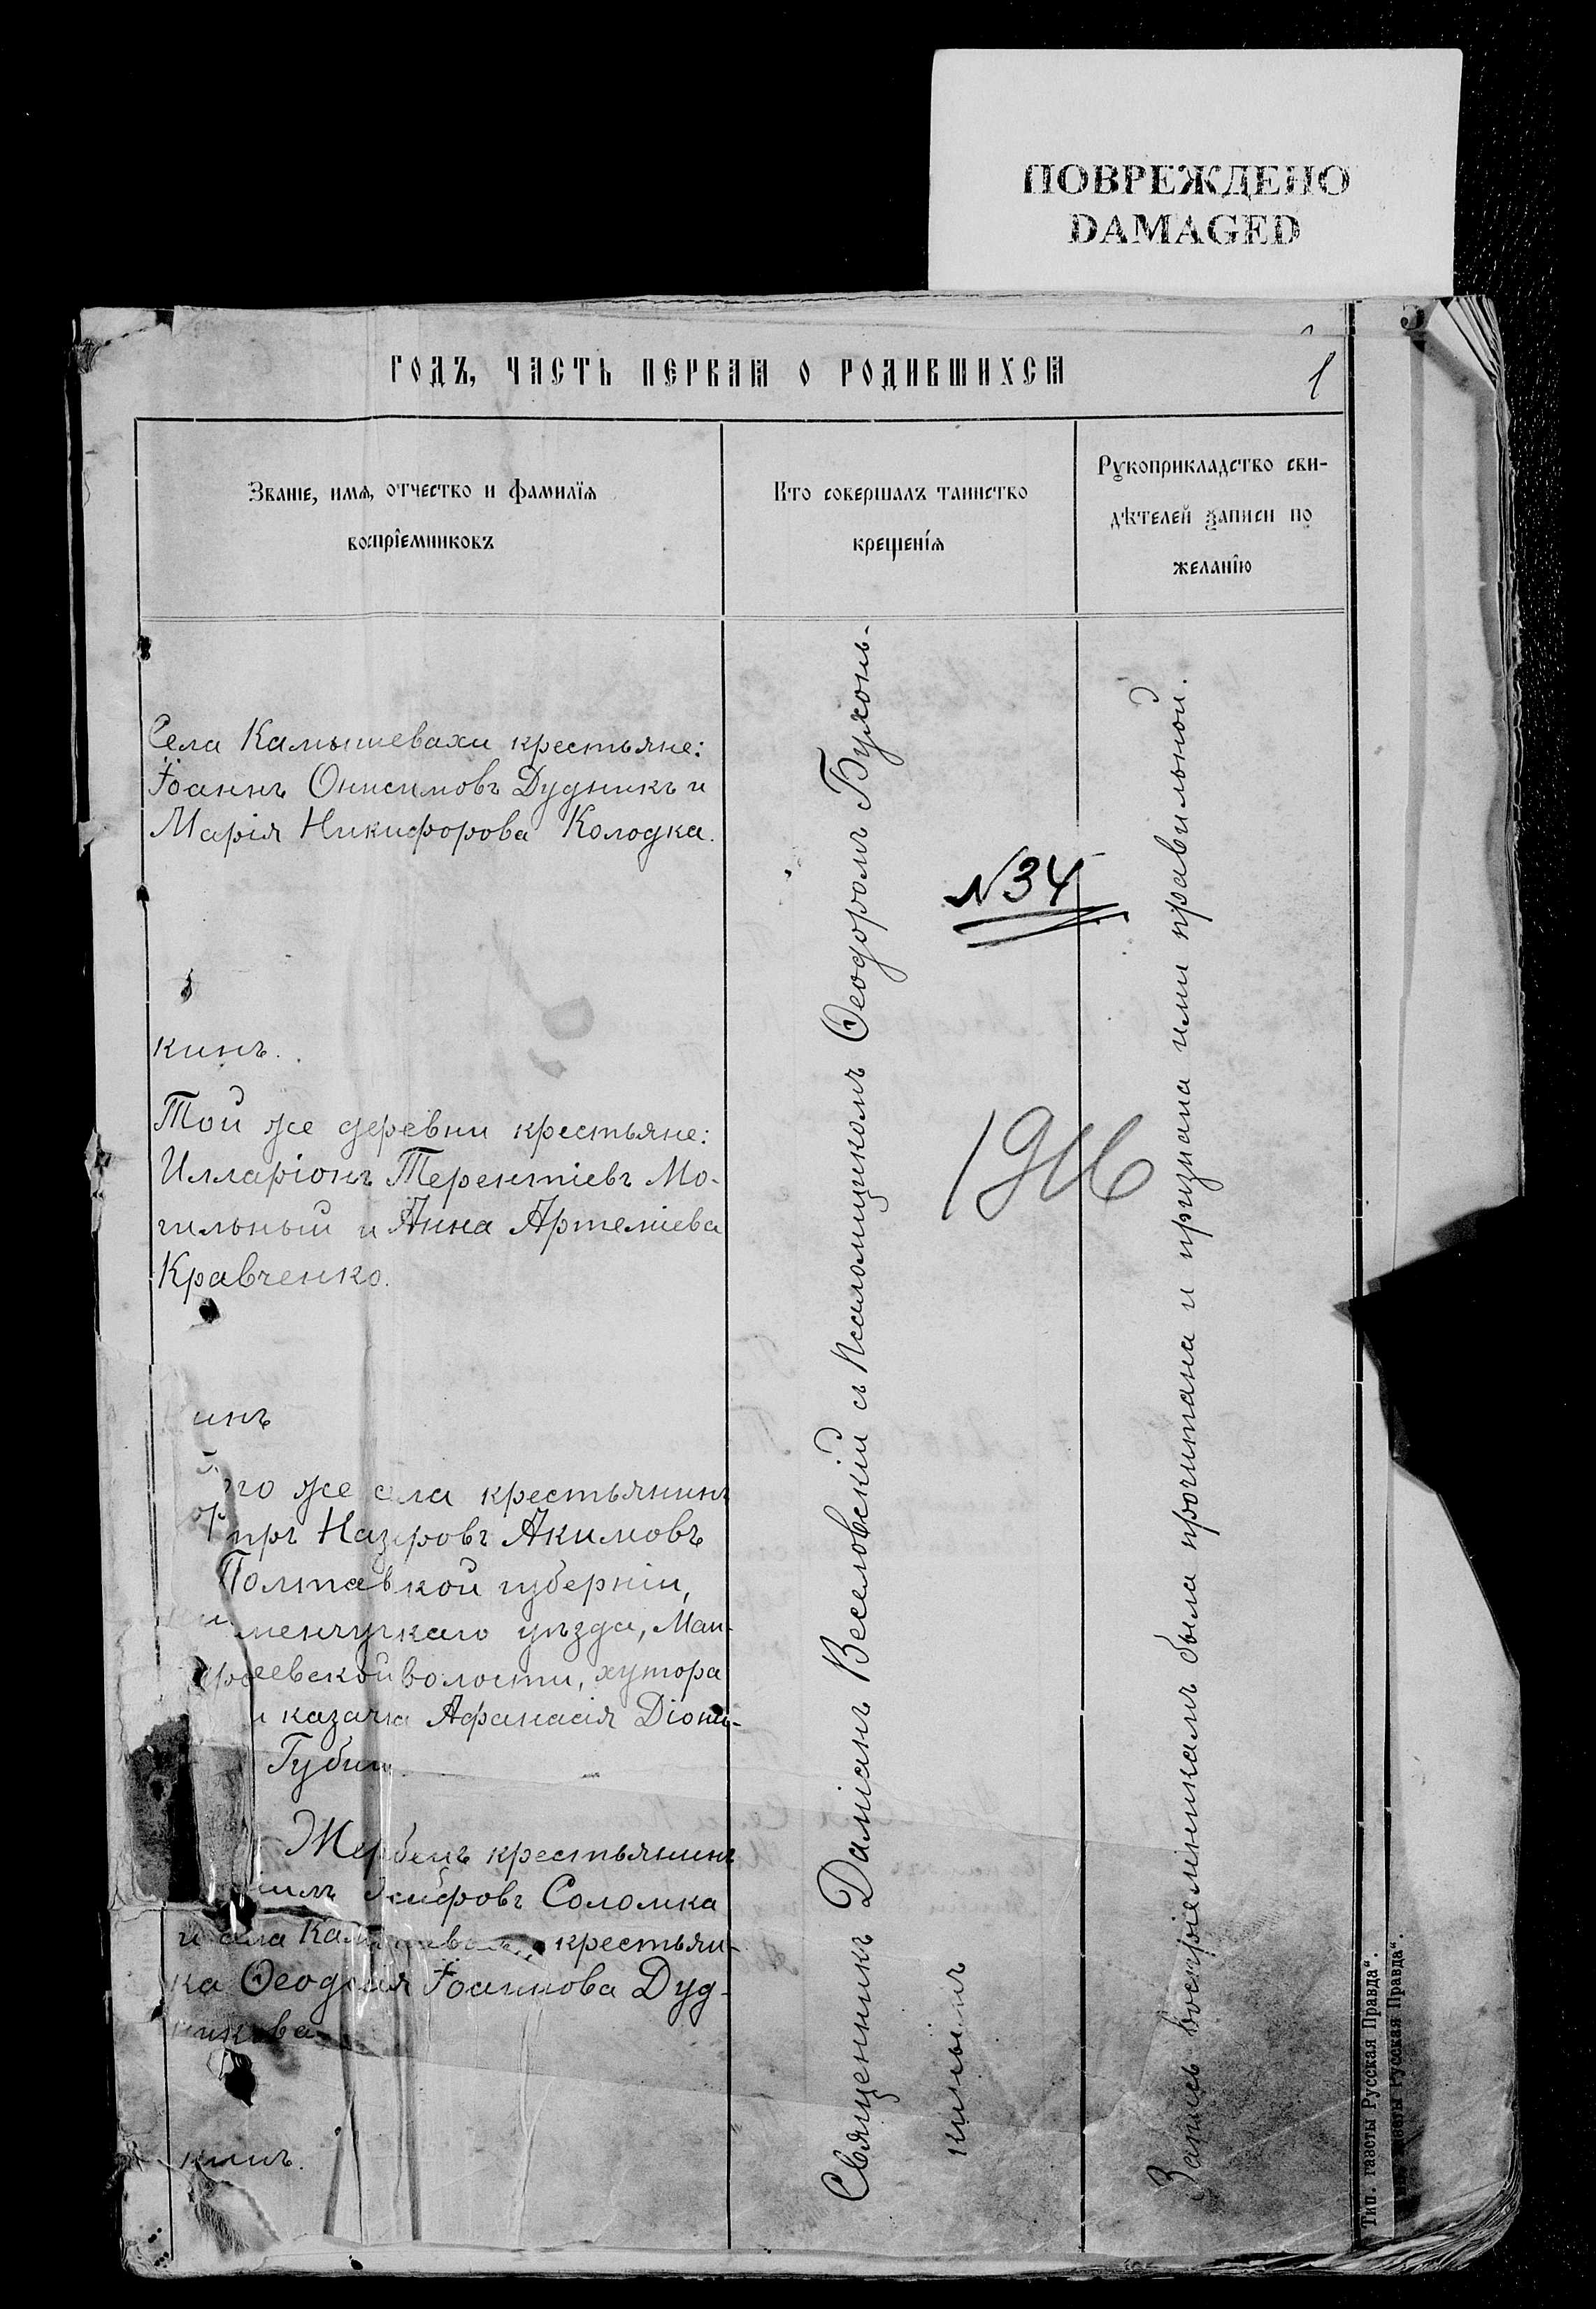 ПОВРЕЖДЕНО
DAMAGED
ГОДЪ, ЧАСТЬ ПЕРВАѦ О РОДИВШИХСѦ
1
Званіе, имѧ, отчество и фамилїѧ
воспрїемниковъ
Кто совершалъ таинство
крещенїѧ
Рꙋкоприкладство сви-
дѣтелей записи по
желанїю
Села Камышевахи крестьяне:
Іоаннъ Онисимовъ Дудникъ и
Марія Никифорова Колодка.
кинъ.
Той же деревни крестьяне:
Илларіонъ Терентіевъ Мо-
гильный и Анна Артеміева
Кравченко.
инъ
го же села крестьянинъ
Назаровъ Акимовъ
Полтавской губерніи,
менчугскаго уѣзда, Ман-
жеевской волости, хутора
казачка Афанасія Діони-
Губин
Жеребецъ крестьянинъ
Соломка
и села Камышевахи крестьян-
ка Ѳеодосія Іоаннова Дуд-
никова
кинъ.
Священникъ Даміанъ Веселовскій съ Псаломщикомъ Ѳеодоромъ Бухонь-
кинымъ
N34
1916
Запись воспріемникамъ была прочитана и признана ими правильной.
Тип. газеты Русская Правда".
газеты Русская Правда".